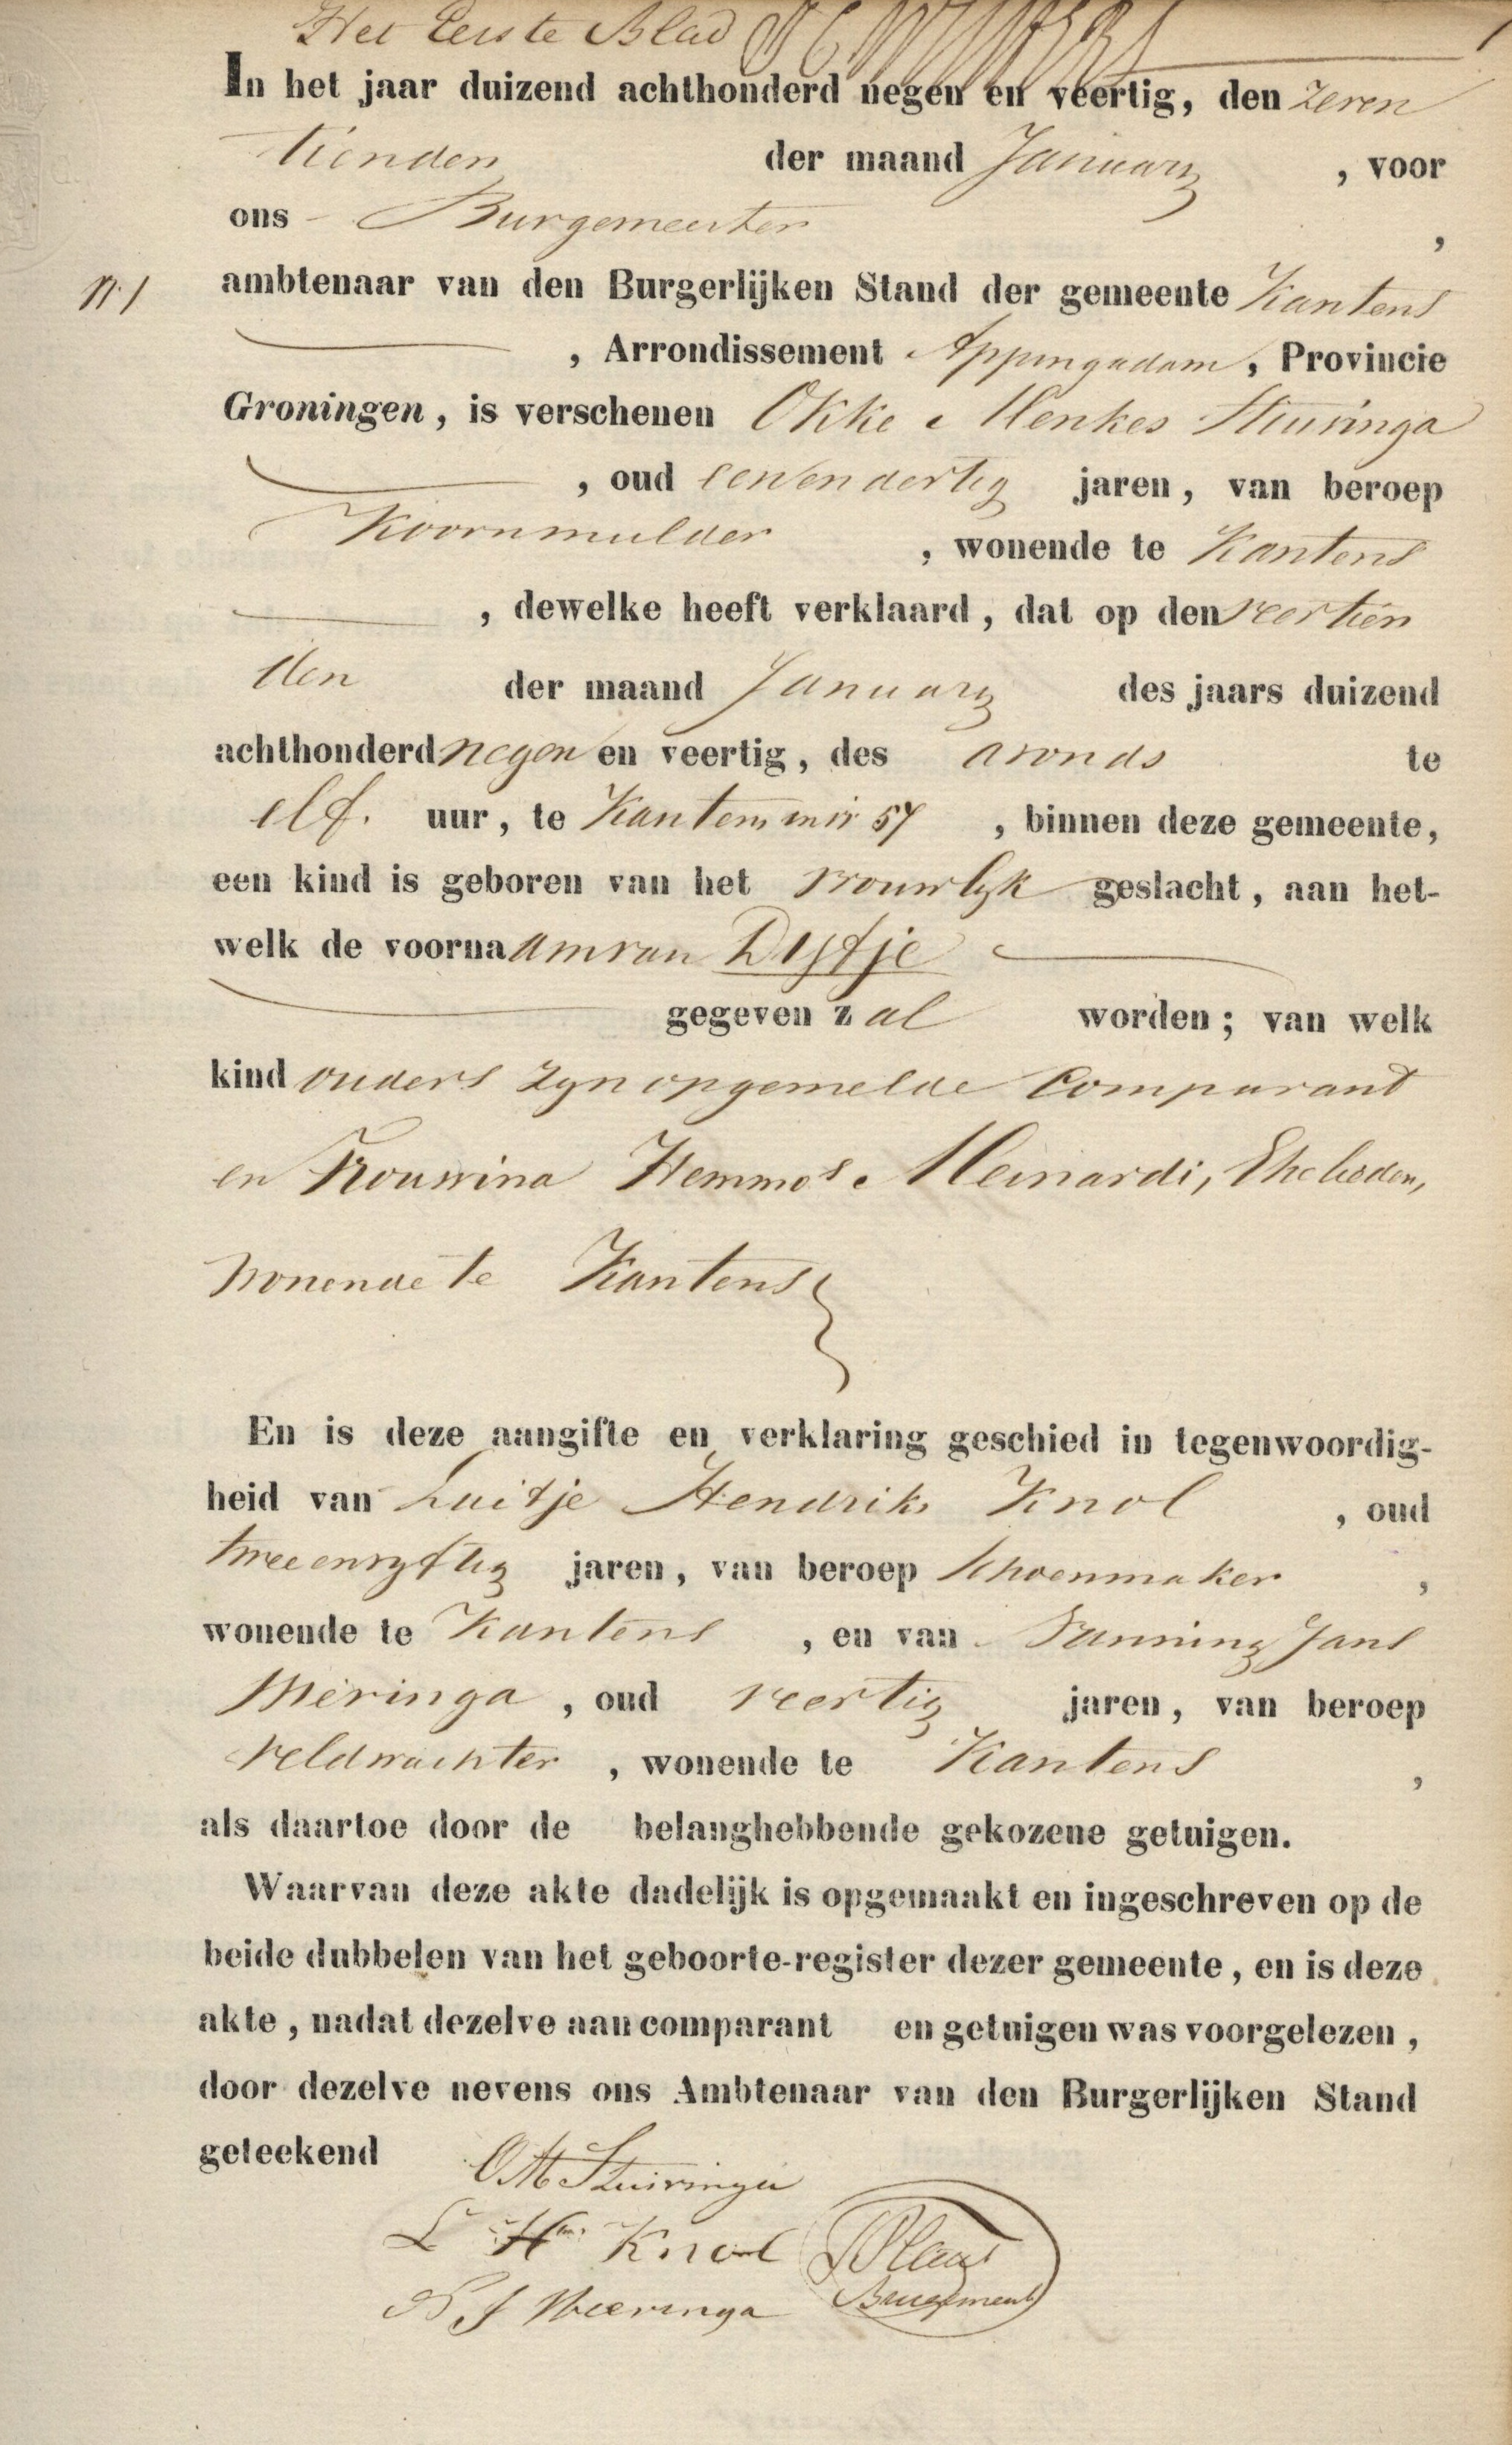 Het Eerste Blad
In het jaar duizend achthonderd negen en veertig, den zeven
tienden der maand January , voor
ons Burgemeester ,
N. 1
ambtenaar van den Burgerlijken Stand der gemeente Kantens
, Arrondissement Appingadam, Provincie
Groningen, is verschenen Okke Menkes Stuivinga
, oud eenendertig jaren, van beroep
Koornmulder , wonende te Kantens
, dewelke heeft verklaard, dat op den veertien
den der maand January des jaars duizend
achthonderd negen en veertig, des avonds te
elf uur, te Kantens in nr 57 , binnen deze gemeente,
een kind is geboren van het vrouwlyk geslacht, aan het-
welk de voornaam van Dytje
gegeven zal worden; van welk
kind ouders zyn opgemelde Comparant
en Trouwina Hemmes Meinardi, Ehelieden,
wonende te Kantens
En is deze aangifte en verklaring geschied in tegenwoordig-
heid van Luitje Hendriks Knol , oud
tweeenvyftig jaren, van beroep Schoenmaker ,
wonende te Kantens , en van Jans
Wieringa , oud veertig jaren, van beroep
veldwachter , wonende te Kantens ,
als daartoe door de belanghebbende gekozene getuigen.
Waarvan deze akte dadelijk is opgemaakt en ingeschreven op de
beide dubbelen van het geboorte-register dezer gemeente, en is deze
akte, nadat dezelve aan comparant en getuigen was voorgelezen,
door dezelve nevens ons Ambtenaar van den Burgerlijken Stand
geteekend
O M Stuivinga
L Hs Knol
J Wieringa